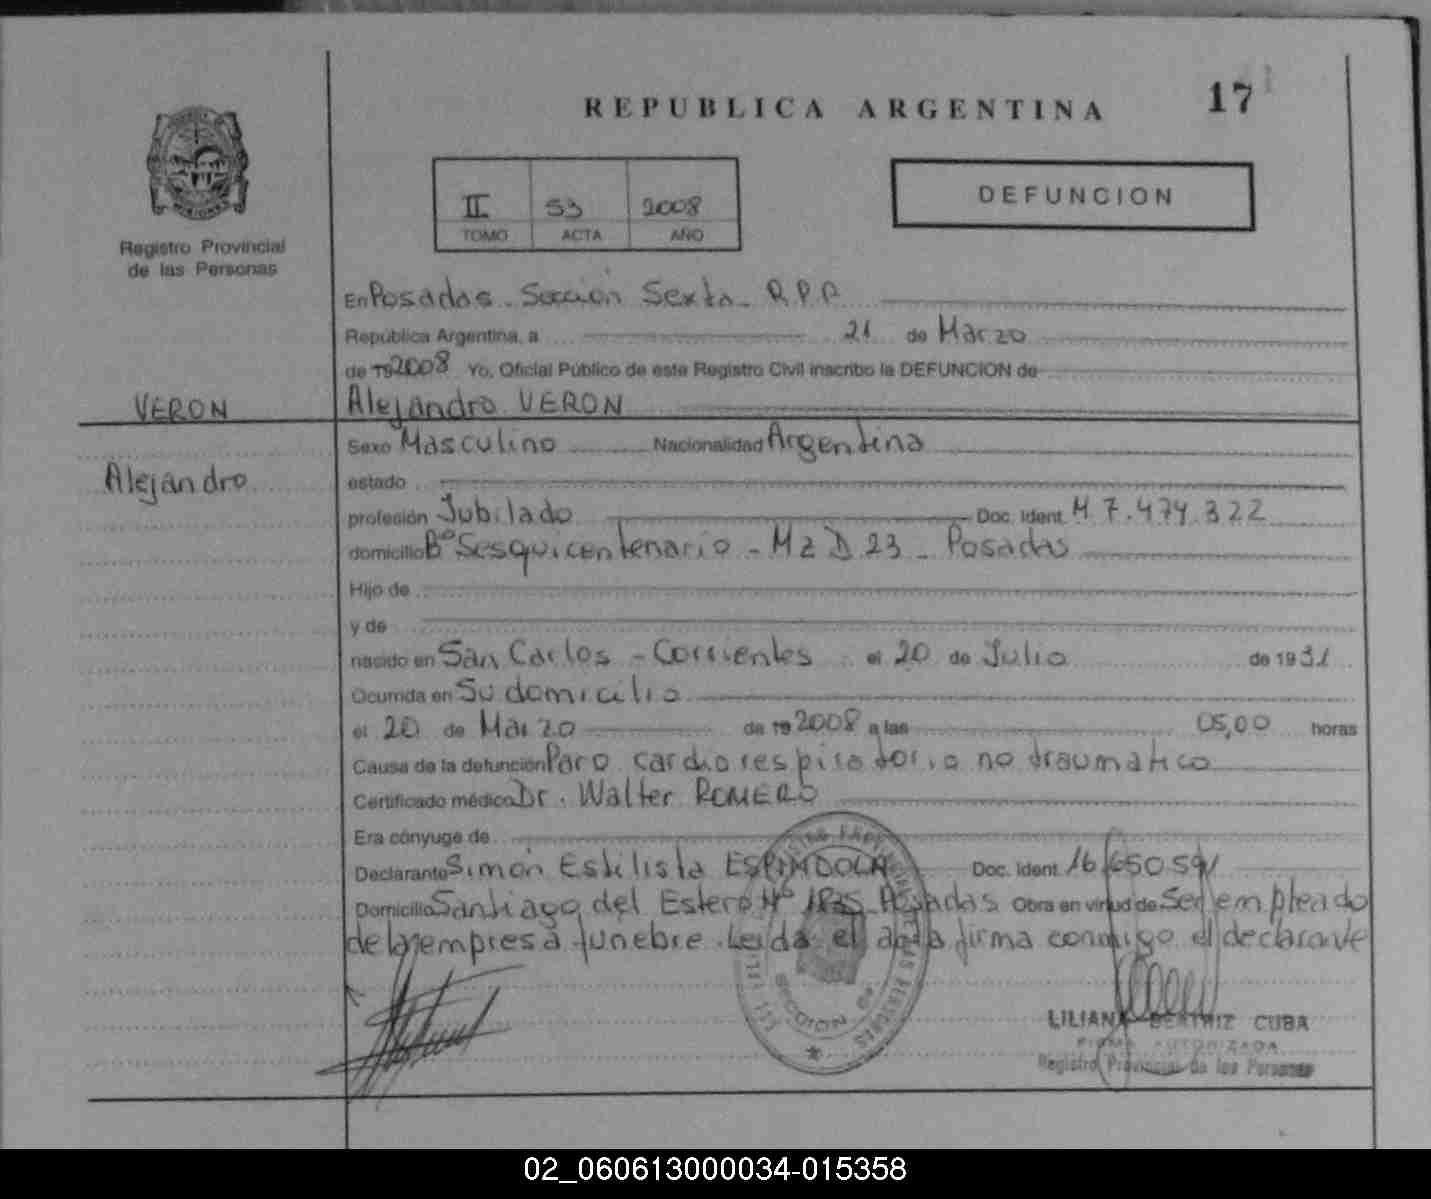 REPUBLICA ARGENTINA
17
II 53 2008
TOMO ACTA AÑO
DEFUNCION
Registro Provincial
de las Personas
En Posadas - Sección Sexta - R.P.P.
República Argentina, a 21 de Marzo
de 19 2008 Yo, Oficial Público de este Registro Civil inscribo la DEFUNCION de
VERON
Alejandro VERON
Alejandro
Sexo Masculino Nacionalidad Argentina
estado
profesión Jubilado Doc. Ident. M 7.474.322
domicilio Bº Sesquicentenario - Mz D 23 - Posadas
Hijo de
y de
nacido en San Carlos - Corrientes el 20 de Julio de 1931
Ocurrida en Su domicilio
el 20 de Marzo de 19 2008 a las 05,00 horas
Causa de la defunción Paro cardiorespiratorio no traumatico
Certificado médico Dr. Walter ROMERO
Era cónyuge de
Declarante Simón Estilista ESPINDOLA Doc. Ident. 16.650.591
Domicilio Santiago del Estero Nº Posadas Obra en virtud de Ser empleado
de la empresa funebre. Leida el acta firma conmigo el declarante
LILIANA BEATRIZ CUBA
FIRMA AUTORIZADA
Registro Provincial de las Personas
02_060613000034-015358